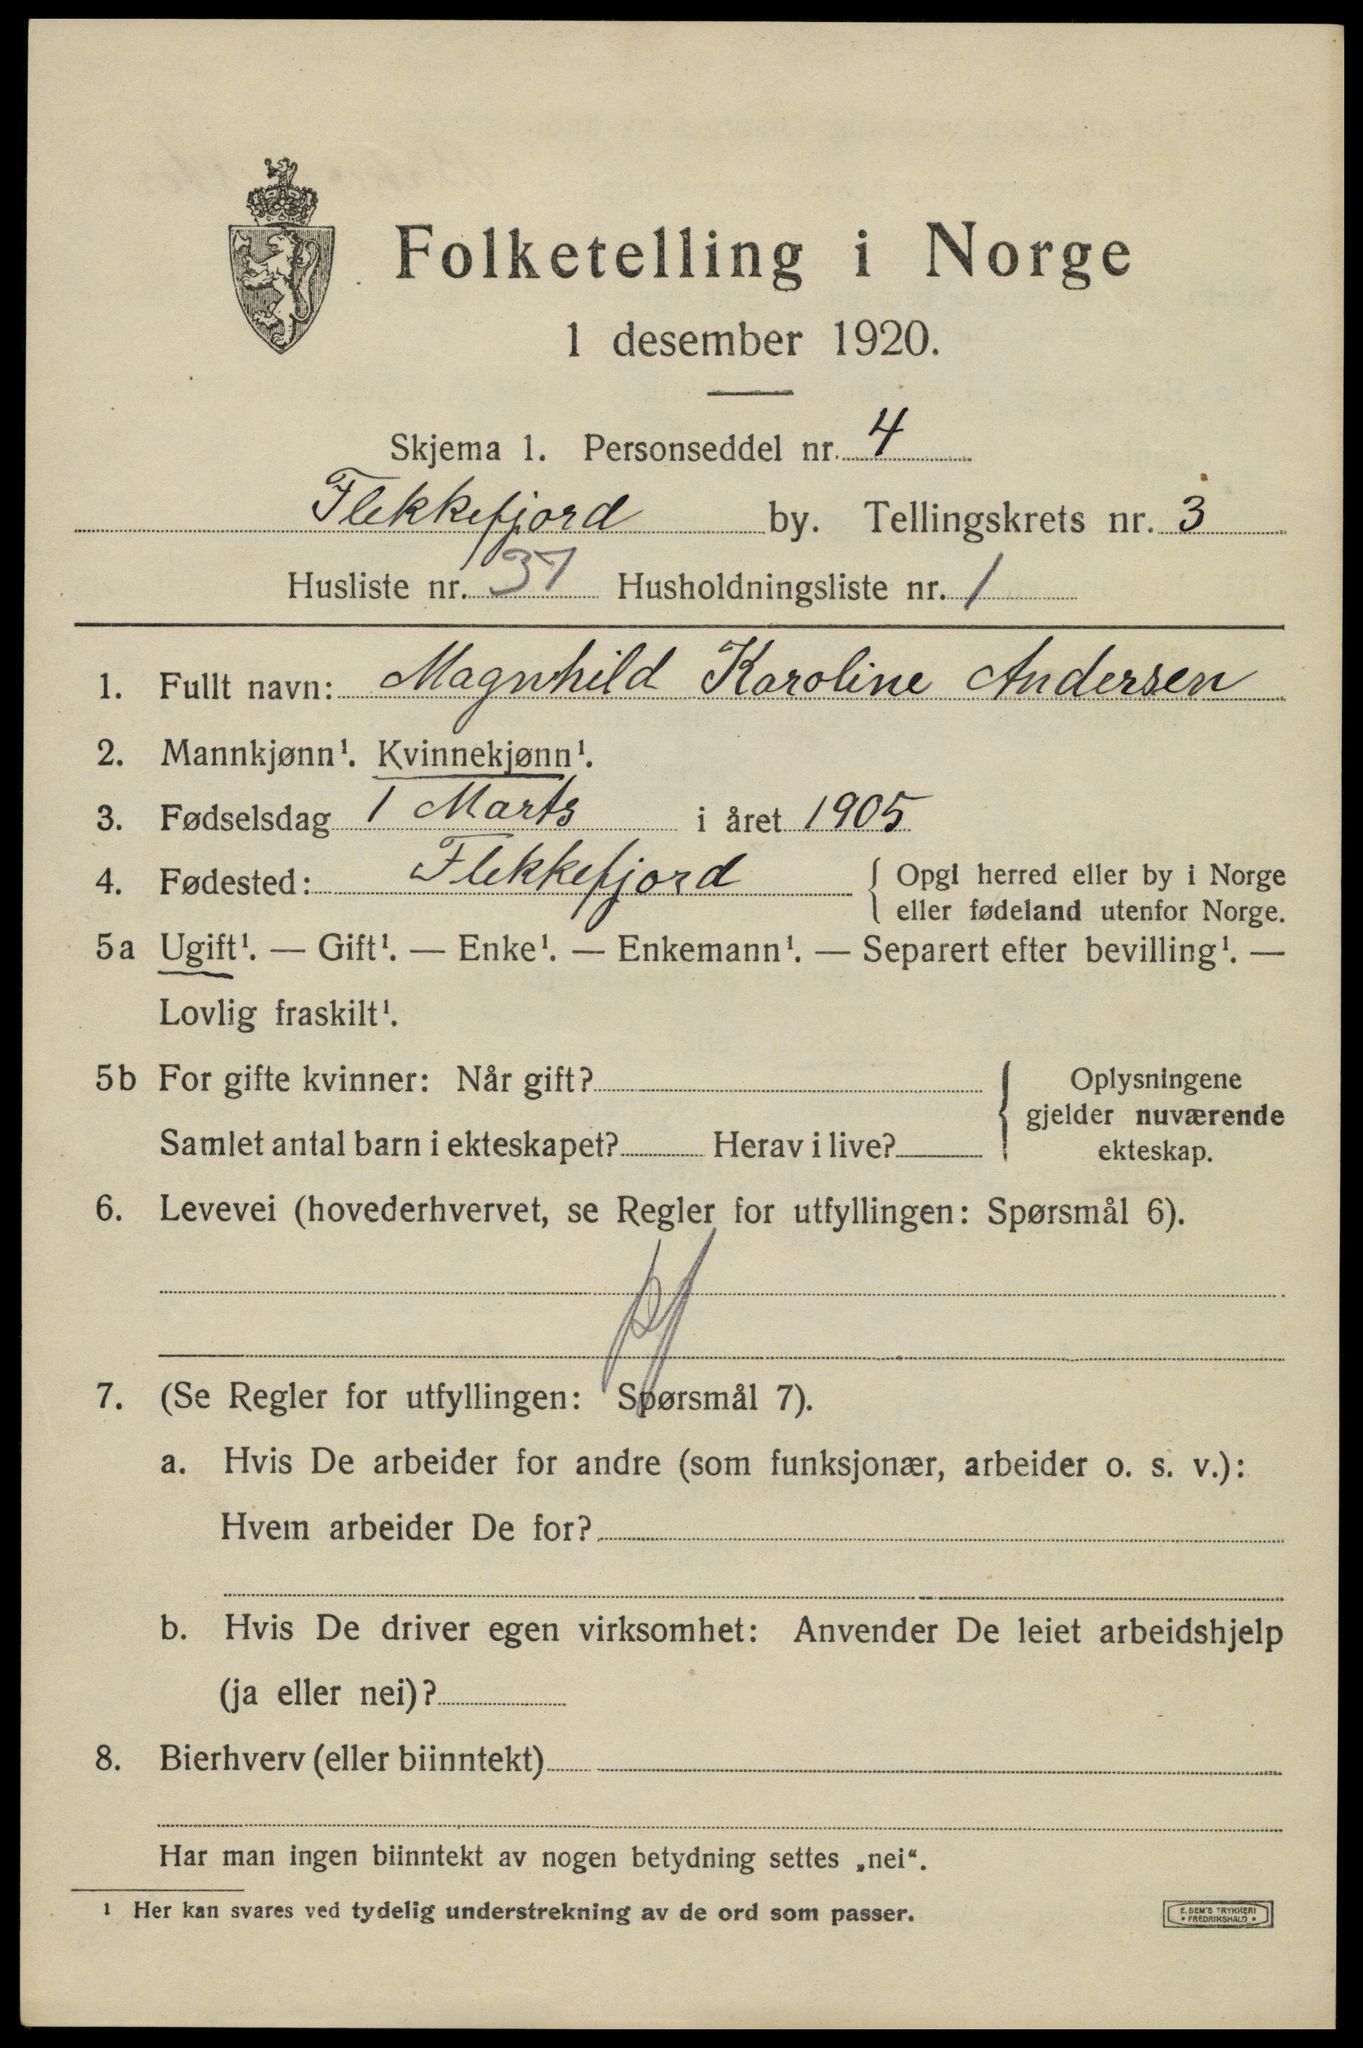 Folketelling i Norge
1 desember 1920.
Skjema 1. Personseddel nr. 4
Flekkefjord by. Tellingskrets nr. 3
Husliste nr. 37 Husholdningsliste nr. 1
1. Fullt navn: Magnhild Karoline Andersen
2. Mannkjønn¹. Kvinnekjønn¹.
3. Fødselsdag 1 Marts i året 1905
4. Fødested: Flekkefjord { Opgi herred eller by i Norge
eller fødeland utenfor Norge.
5a Ugift¹. — Gift¹. — Enke¹. — Enkemann¹. — Separert efter bevilling¹. —
Lovlig fraskilt¹.
5b For gifte kvinner: Når gift? { Oplysningene
gjelder nuværende
Samlet antal barn i ekteskapet? Herav i live? ekteskap.
6. Levevei (hovederhvervet, se Regler for utfyllingen: Spørsmål 6).
7. (Se Regler for utfyllingen: Spørsmål 7).
a. Hvis De arbeider for andre (som funksjonær, arbeider o. s. v.):
Hvem arbeider De for?
b. Hvis De driver egen virksomhet: Anvender De leiet arbeidshjelp
(ja eller nei)?
8. Bierhverv (eller biinntekt)
Har man ingen biinntekt av nogen betydning settes „nei“.
¹ Her kan svares ved tydelig understrekning av de ord som passer.
E. SEM'S TRYKKERI
• FREDRIKSHALD •